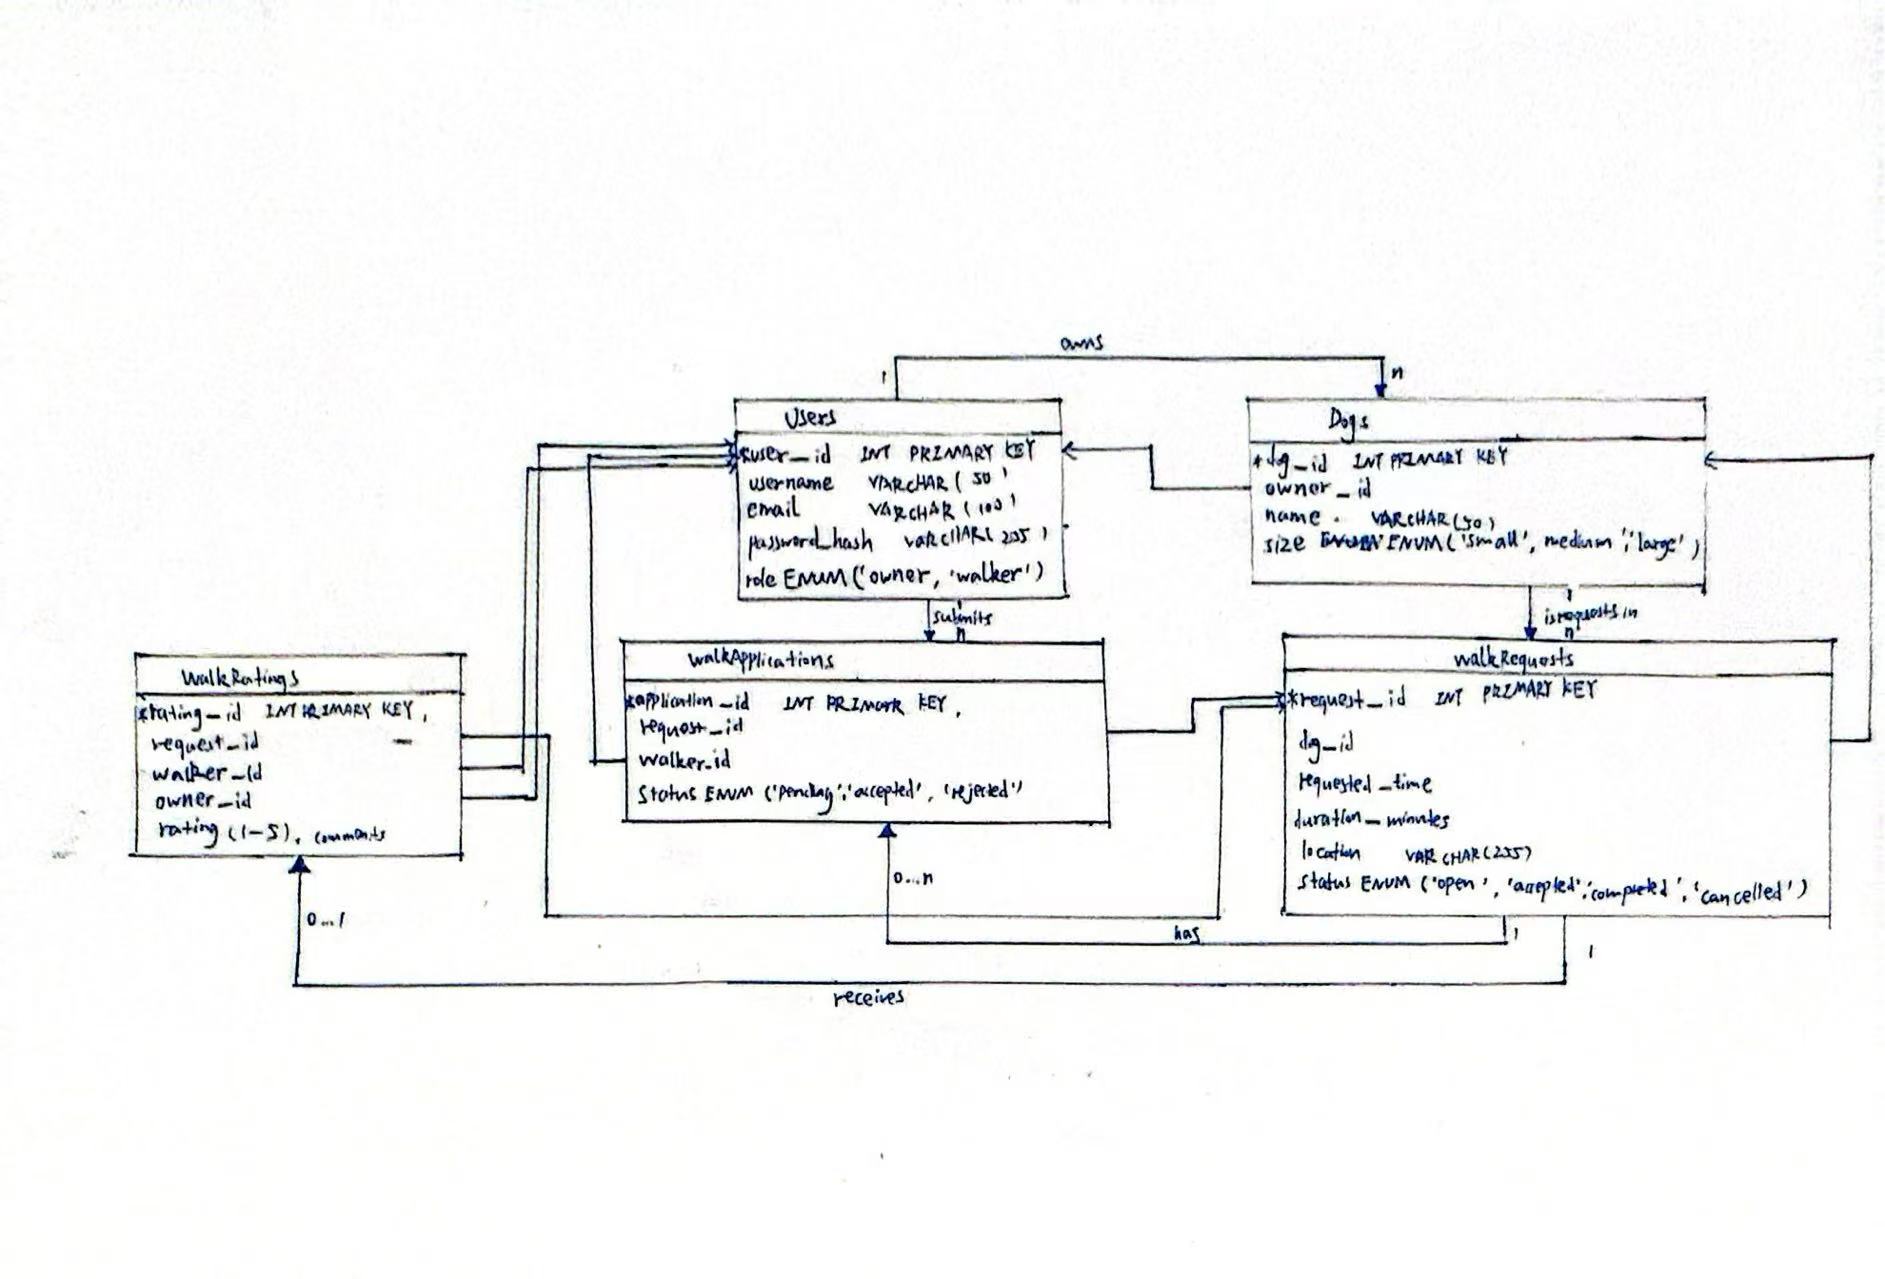 owns
1
n
Users
*user_id INT PRIMARY KEY
username VARCHAR(50)
email VARCHAR(100)
password_hash VARCHAR(255)
role ENUM('owner, 'walker')
Dogs
*dog_id INT PRIMARY KEY
owner_id
name . VARCHAR(50)
size ENUM('small', medium','large')
1
submits
n
1
is requests in
n
WalkRatings
*rating_id INT PRIMARY KEY,
request_id —
walker_id
owner_id
rating (1-5), comments
walkApplications
*application_id INT PRIMARK KEY,
request_id
walker_id
Status ENUM ('Pending','accepted', 'rejected')
walkRequests
*request_id INT PRIMARY KEY
dog_id
requested_time
duration_minutes
location VARCHAR(255)
Status ENUM ('open', 'accepted','completed','cancelled')
0...n
0...1
has
1
1
receives